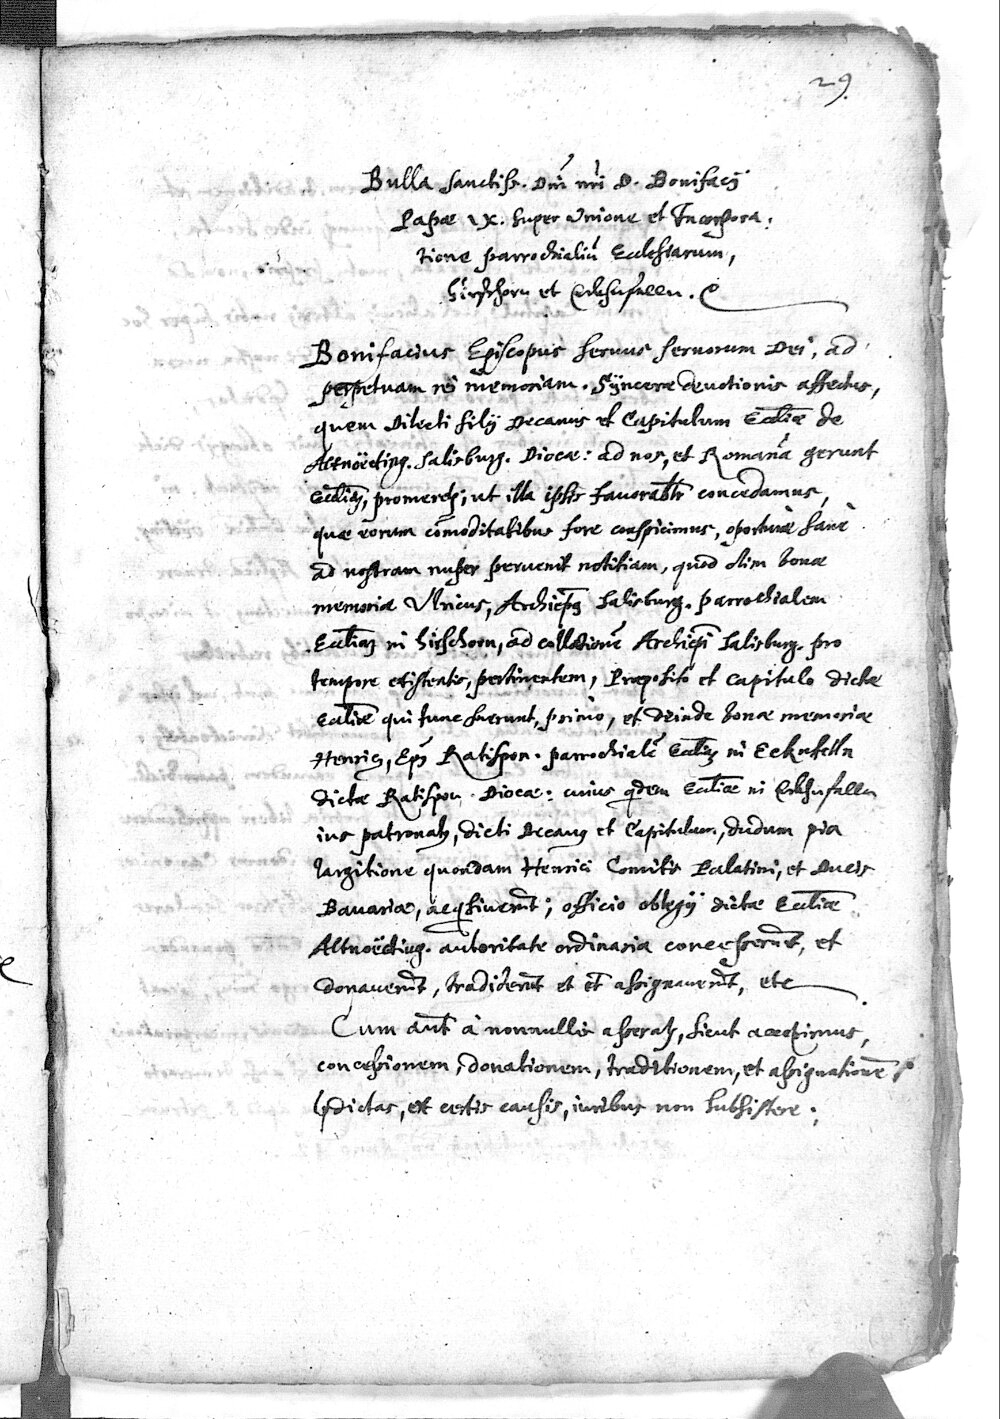 29.
Bulla sanctiss. Dni nri D. Bonifacij
Papæ IX. super Vnione et Incorpora:
tione parrochialiū Ecclesiarum,
Hirschorn et
Bonifacius Episcopus seruus seruorum Dei, ad
perpetuam rei memoriam. Sÿncere deuotionis affectus,
quem Dilecti filij Decanus et Capitulum Ecctiæ de
Altnöeting. Salisburg. Diocæ: ad nos, et Romanā gerunt
promeretr, ut illa ipsis concedamus,
quæ eorum com̄oditatibus fore conspicimus, oportuna sane
ad nostram nuper peruenit notitiam, quod olim bonæ
memoriæ Vlricus, Archiep̄s Salisburg. parrochialem
in Hirschorn, ad collationē Archiep̄i Salisburg. pro
tempore existentis, pertinentem, Præposito et Capitulo dictæ
Ecctiæ qui tunc fuerunt, primo, et deinde bonæ memoriæ
Henricus, Ep̄s Ratispon. parrochialē in Ecknfelln
dictæ Ratispon. Diocæ: cuius qdem Ecctiæ in
ius patronats, dicti Decanus et Capitulum, dudum pia
largitione quondam Henrici Comitis Palatini, et Ducis
Bauariæ, acqsiuerūt; officio oblegij dictæ Ecctiæ
Altnöeting. autoritate ordinaria concesserūt, et
donauerūt, tradiderūt et assignauerūt, etc
Cum aut à nonnullis asseratr, sicut accepimus,
concessionem, donationem, traditionem, et assignationē
pdictas, ex certis causis, iuribus non subsistere;